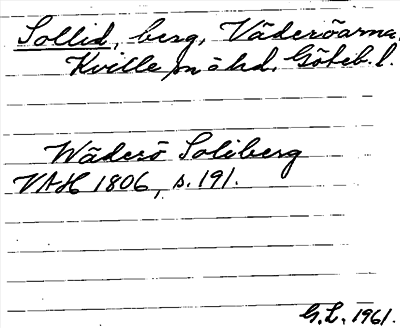 Sollid, berg, Väderöarna,
Kville sn o hd. Göteb. l.
Wäderö Soliberg
VAH 1806, s. 191.
G.L. 1961.